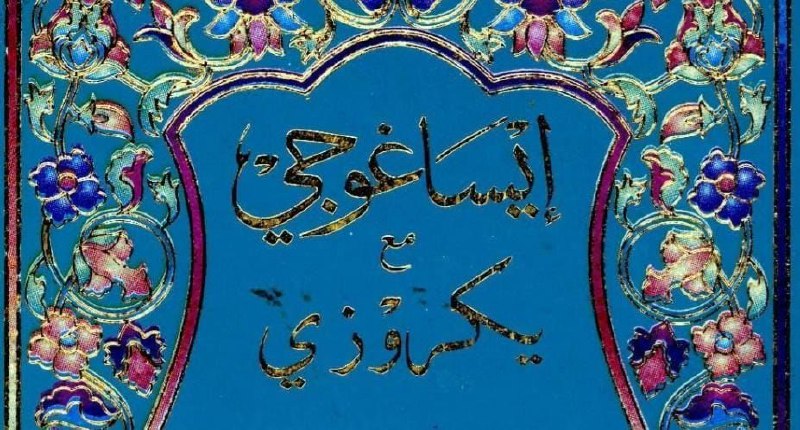 إيساغوجي
مع
يكروزي